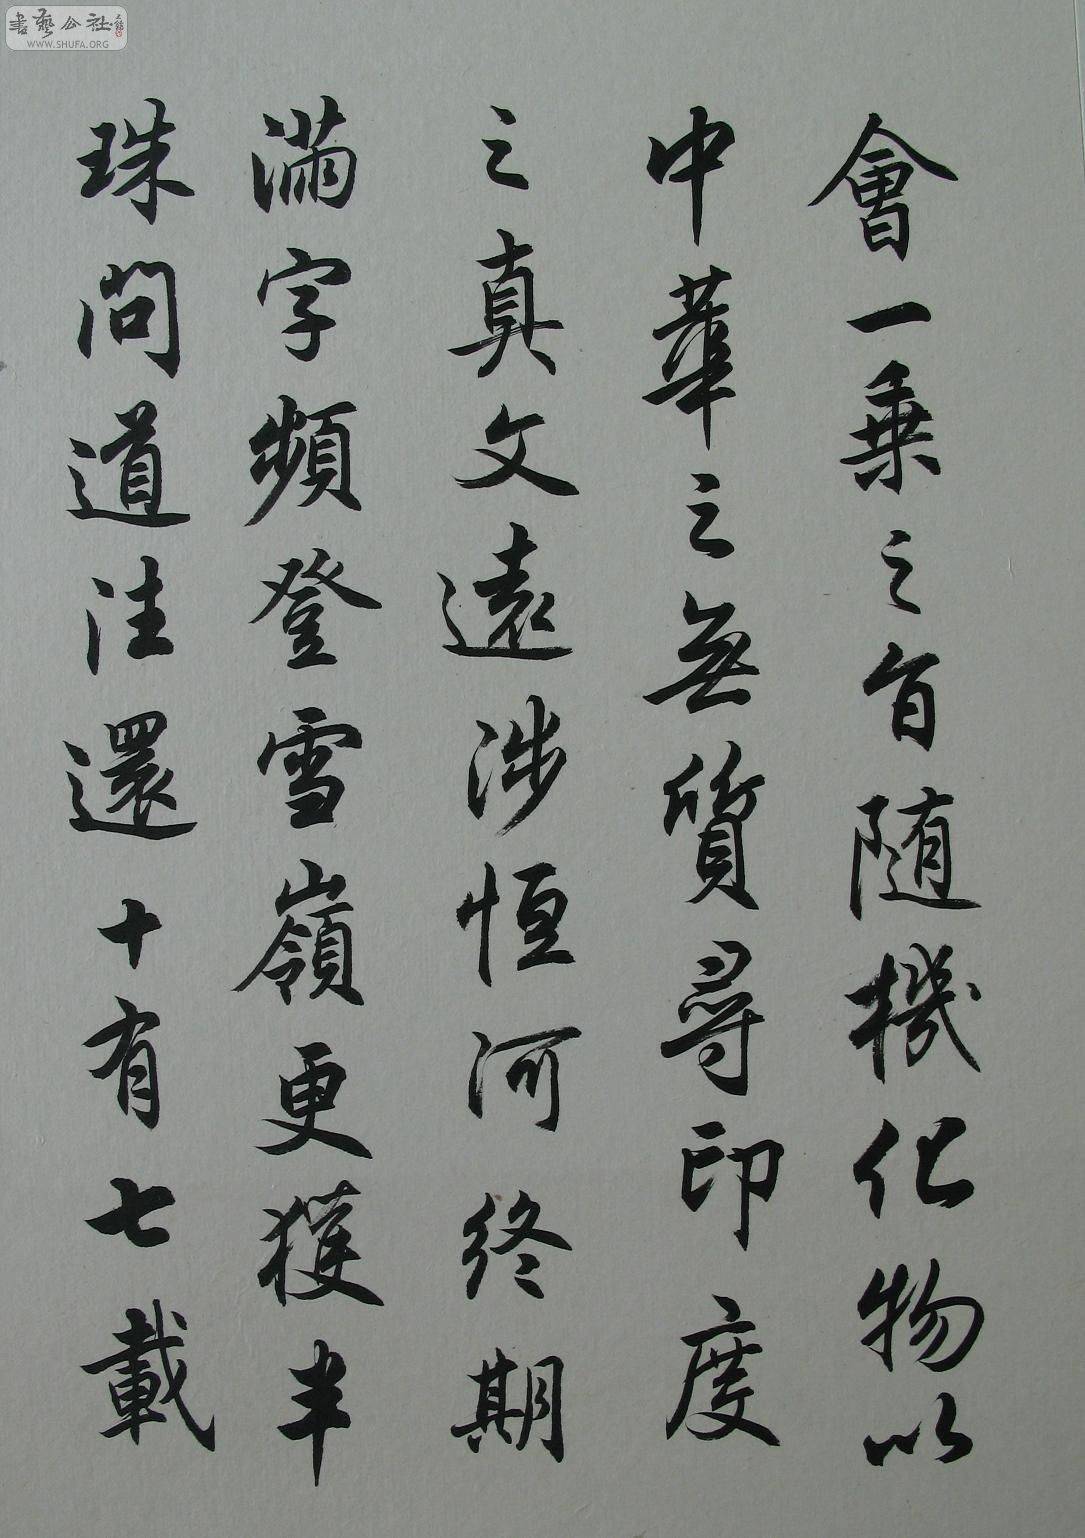 會一乗之旨随機化物以
中華之無質尋印度
之真文遠涉恒河終期
滿字頻登雪嶺更獲半
珠問道法還十有七載
書藝公社
WWW.SHUFA.ORG